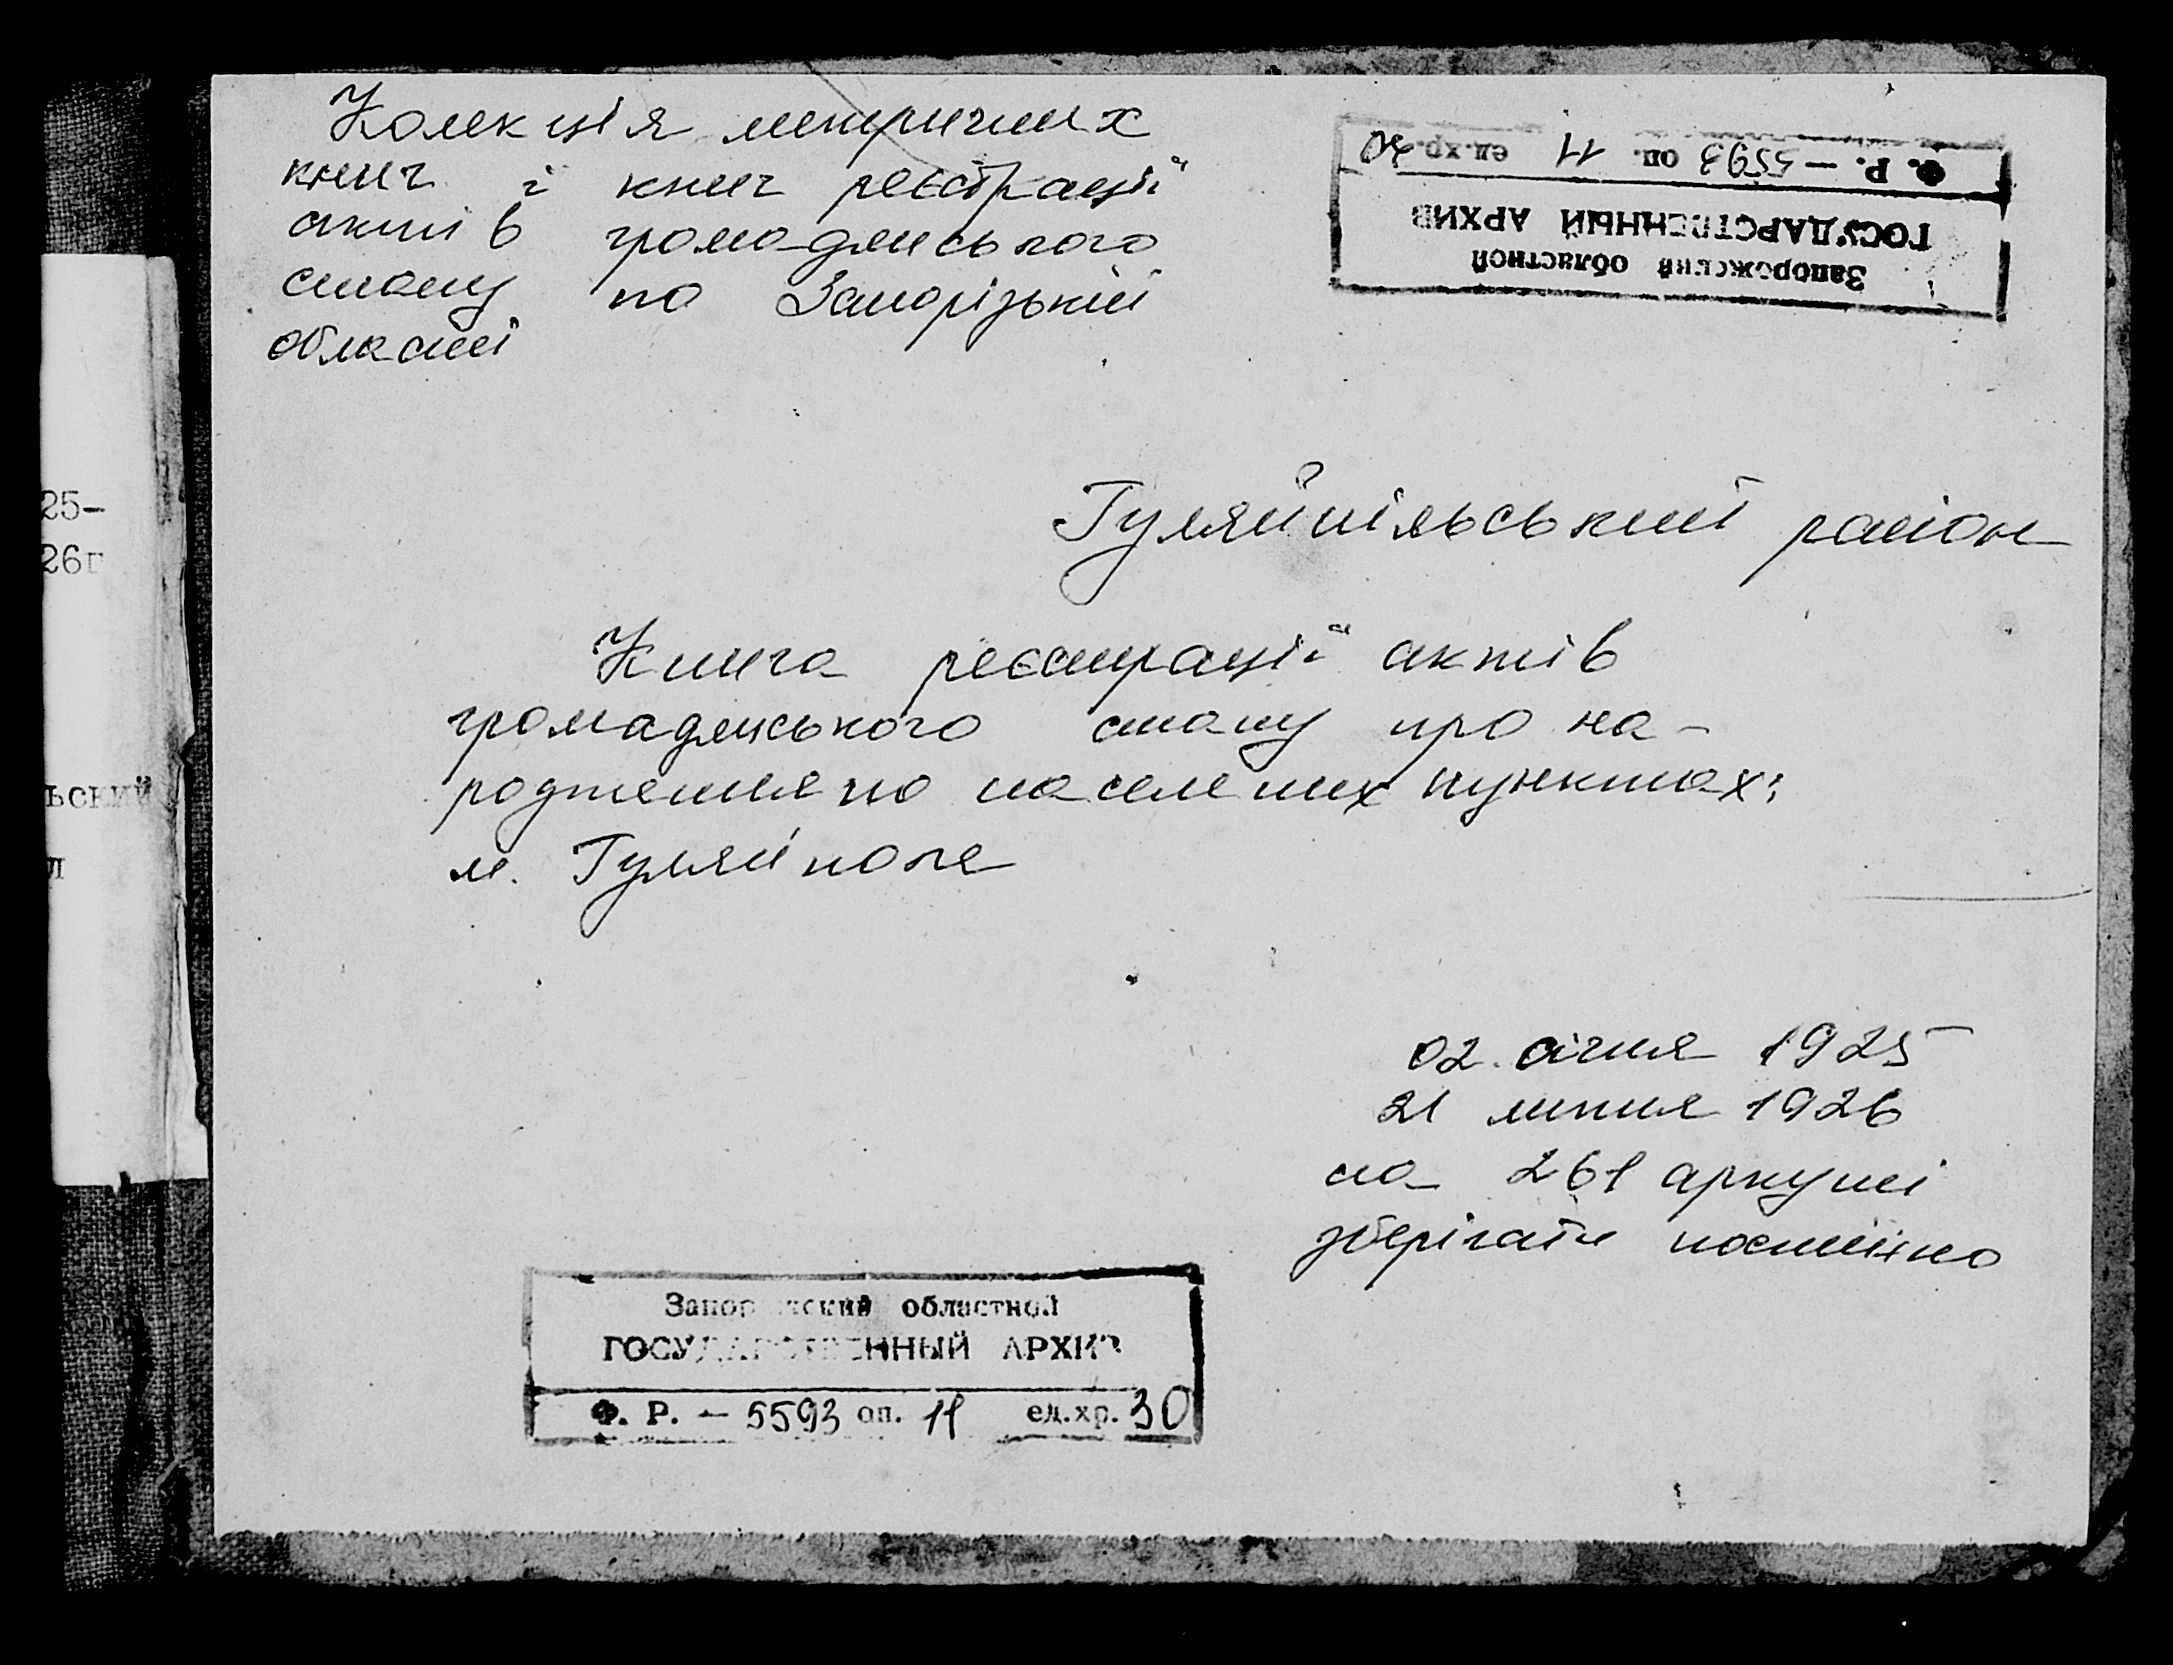 Колекція метричних
книг і книг реєстрації
актів громадянського
стану по Запорізькій
області
Ф. Р. — 5593 оп. 11 ед.хр. 30
ГОСУДАРСТВЕННЫЙ АРХИВ
Запорожский областной
Гуляйпільський район
Книга реєстрації актів
громадянського стану про на-
родження по населених пунктах:
м. Гуляйполе
02. січня 1925
21 липня 1926
на 261 аркуші
зберігати постійно
Запорожский областной
ГОСУДАРСТВЕННЫЙ АРХИВ
Ф. Р. — 5593 оп. 11 ед.хр. 30
25-
26г
ьский
л